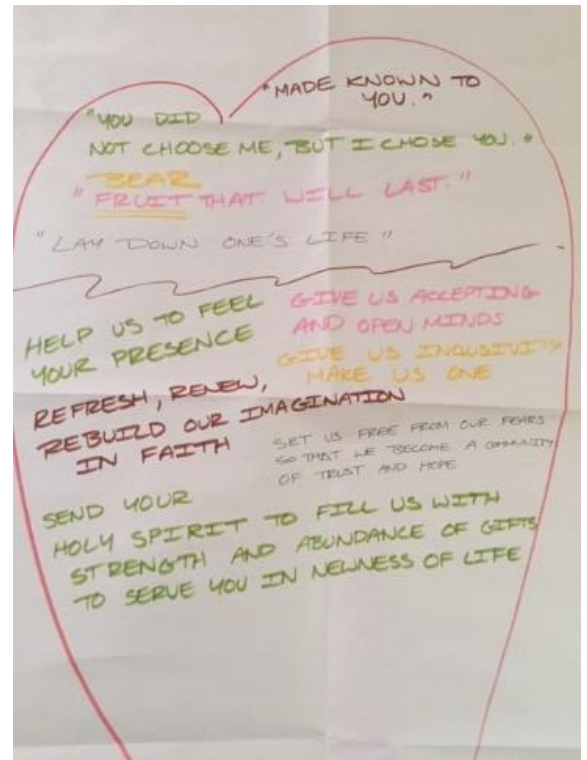 "MADE KNOWN TO
YOU."
"YOU DID
NOT CHOOSE ME, BUT I CHOSE YOU."
BEAR
"FRUIT THAT WILL LAST."
"LAY DOWN ONE'S LIFE"
HELP US TO FEEL
YOUR PRESENCE
GIVE US ACCEPTING
AND OPEN MINDS
GIVE US INQUSIVITY
MAKE US ONE
REFRESH, RENEW,
REBUILD OUR IMAGINATION
IN FAITH
SET US FREE FROM OUR FEARS
SO THAT WE BECOME A COMMUNITY
OF TRUST AND HOPE
SEND YOUR
HOLY SPIRIT TO FILL US WITH
STRENGTH AND ABUNDANCE OF GIFTS
TO SERVE YOU IN NEWNESS OF LIFE